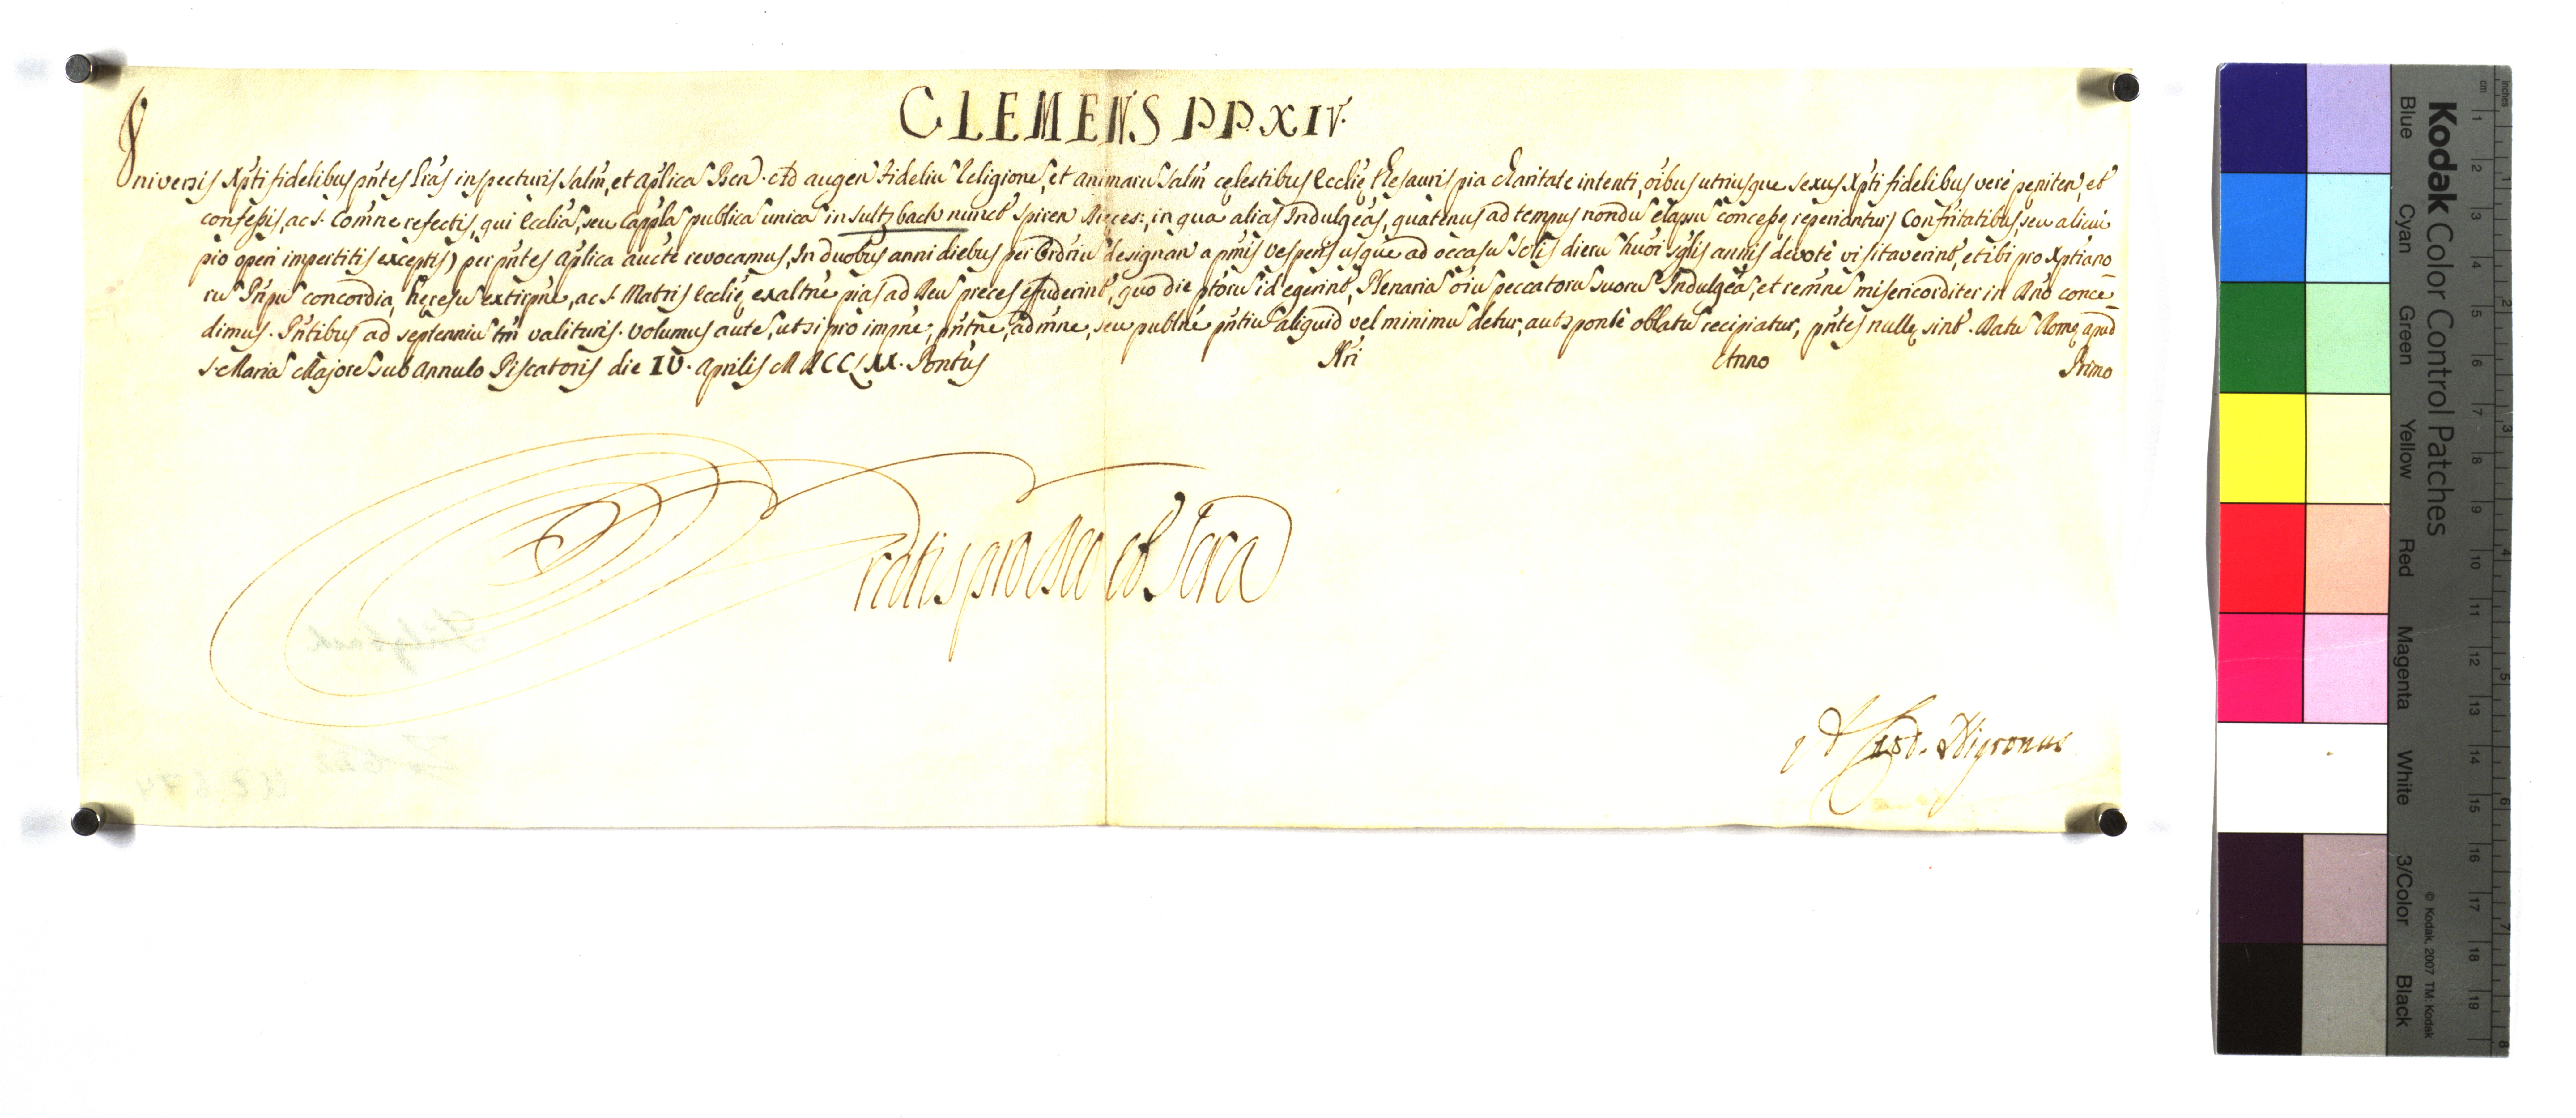 CLEMENS PP. XIV.
Universis Xpti fidelibus pñtes Lrãs inspecturis Salm̃, et Aplicã Ben̄. Ad augen̄ Fideliũ Religionẽ, et animarũ Salm̃ cęlestibus Ecclię Thesauris pia Charitate intenti, oĩbus utriusque sexus Xpti fidelibus verè pęniten̄, et
confeßis, ac S. Comñe refectis, qui Ecclĩã, seu Capplã publicã unicã in Sultzbach nunct Spiren Dięces: in qua aliàs Indulgẽas, quatenus ad tempus nondũ elapsũ conceßę reperiantur) Confrĩtatibus seu alicui
pio operi impertitis exceptis) per pñtes Aplica aucte revocamus, In duobus anni diebus per Ordriũ designan̄ a primis Vesperis usque ad occasũ Solis dierũ huõi sglis annis devotè visitaverint, et ibi pro Xptiano
rũ Prĩpũ concordia, hęresũ extirpñe, ac S. Matris Ecclię exaltñe pias ad Deũ preces effuderint, quo die ptõrũ id egerint, Plenariã oĩũ peccatorũ suorũ Indulgẽã, et remñe misericorditer in Dnõ conce
dimus. Pñtibus ad septenniũ tm̃ valituris. Volumus autẽ, ut si pro impñe, pñtñe, admñe, seu publñe pñtiũ aliquid vel minimũ detur, aut sponte oblatũ recipiatur, pñtes nullę sint. Datũ Romę apud
S. Mariã Majorẽ Sub Annulo Piscatoris die IV. Aprilis MDCCLXX. Pontũs Nrĩ Anno Primo
Gratis pro Deo et Scra
A. Card. Nigronus
Kodak Color Control Patches
Blue Cyan Green Yellow Red Magenta White 3/Color Black
© Kodak, 2007 TM: Kodak
inches 1 2 3 4 5 6 7 8
cm 1 2 3 4 5 6 7 8 9 10 11 12 13 14 15 16 17 18 19